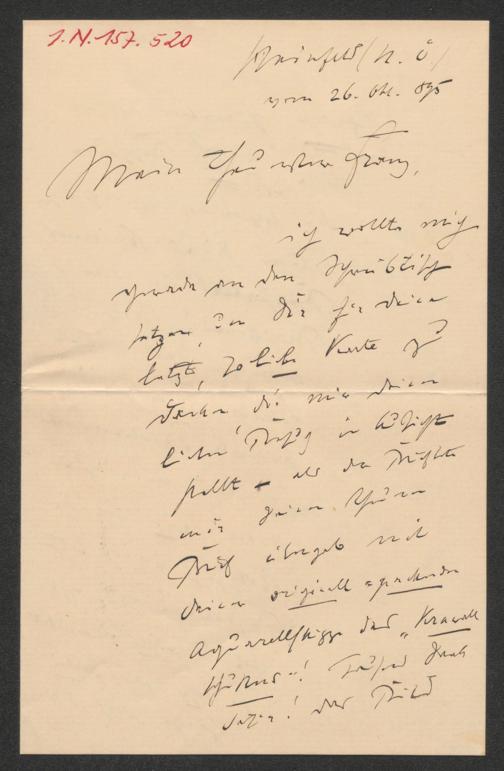 I.N. 157.520
Hainfeld (N. Ö)
vom 26. Okt. 895
Mein theurer Franz,
ich wollte mich
gerade an den Schreibtisch
setzen, Dir für Deine
letzte, so liebe Karte zu
danken die mir Deinen
lieben Besuch in Aussicht
stellt – als der Briefbote
mir Deinen
Brief übergab mit
Deiner originell
Aquarellskizze des "Krawall
! Tausend Dank
! das Bild